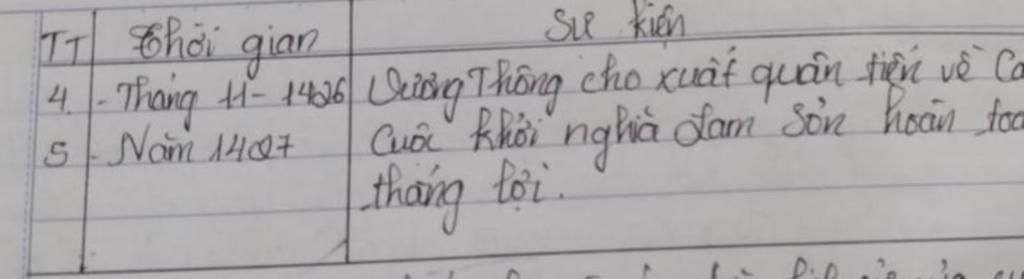 TT Thời gian Sự kiện
4. - Tháng 11 - 1426 Vương Thông cho xuất quân tiến về Ca
5 - Năm 1427 Cuôc khởi nghĩa Lam Sơn hoàn toà
thắng lợi.